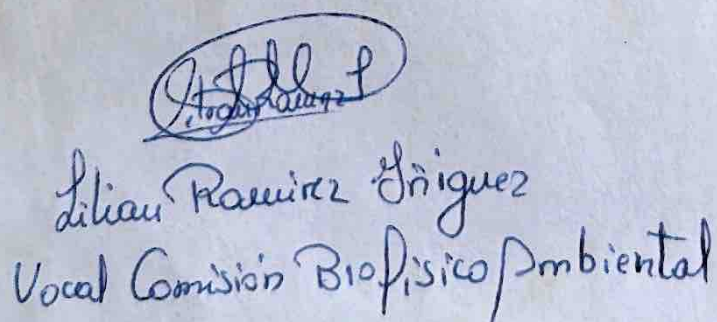 Lilian Ramirez Iñiguez
Vocal Comisión Biofisico Ambiental